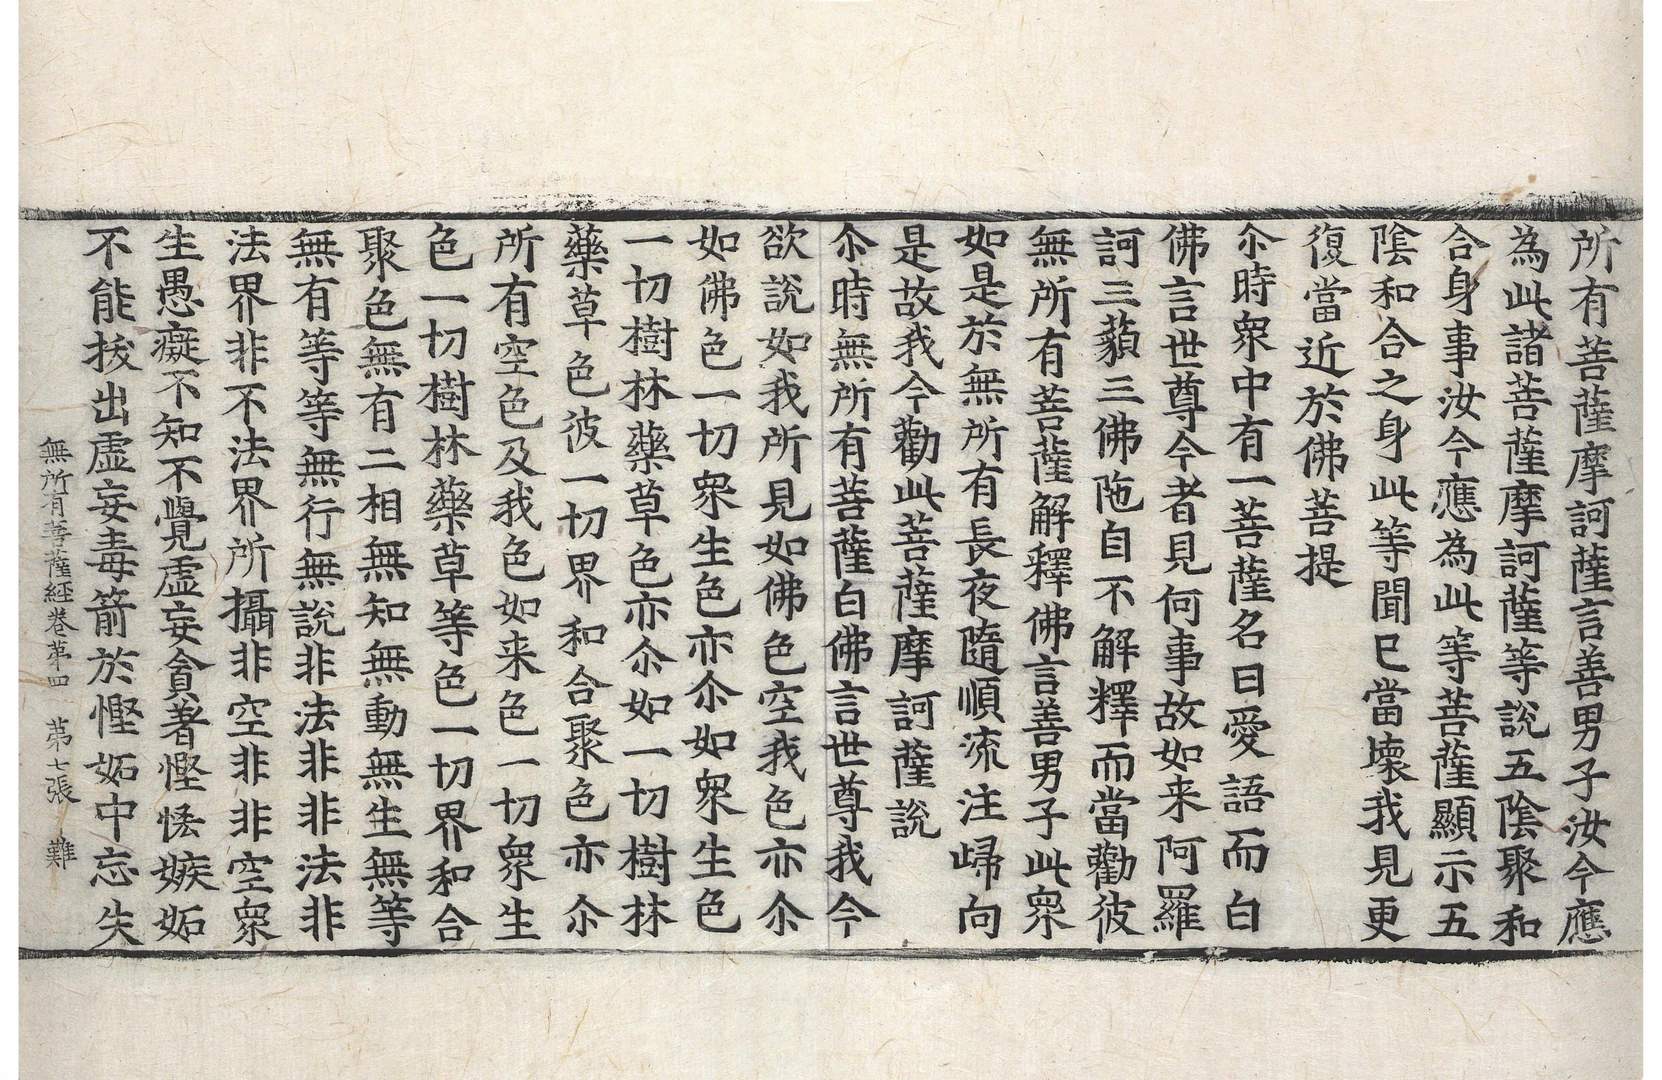 所有菩薩摩訶薩言善男子汝今應
為此諸菩薩摩訶薩等說五陰聚和
合身事汝今應為此等菩薩顯示五
陰和合之身此等聞已當壞我見更
復當近於佛菩提
尒時衆中有一菩薩名曰愛語而白
佛言世尊今者見何事故如来阿羅
訶三藐三佛陁自不解釋而當勸彼
無所有菩薩解釋佛言善男子此衆
如是於無所有長夜隨順流注歸向
是故我今勸此菩薩摩訶薩說
尒時無所有菩薩白佛言世尊我今
欲說如我所見如佛色空我色亦尒
如佛色一切衆生色亦尒如衆生色
一切樹林藥草色亦尒如一切樹林
藥草色彼一切界和合聚色亦尒
所有空色及我色如来色一切衆生
色一切樹林藥草等色一切界和合
聚色無有二相無知無動無生無等
無有等等無行無說非法非非法非
法界非不法界所攝非空非非空衆
生愚癡不知不覺虛妄貪著慳悋嫉妬
不能拔出虛妄毒箭於慳妬中忘失
無所有菩薩経卷第四 第七張 難